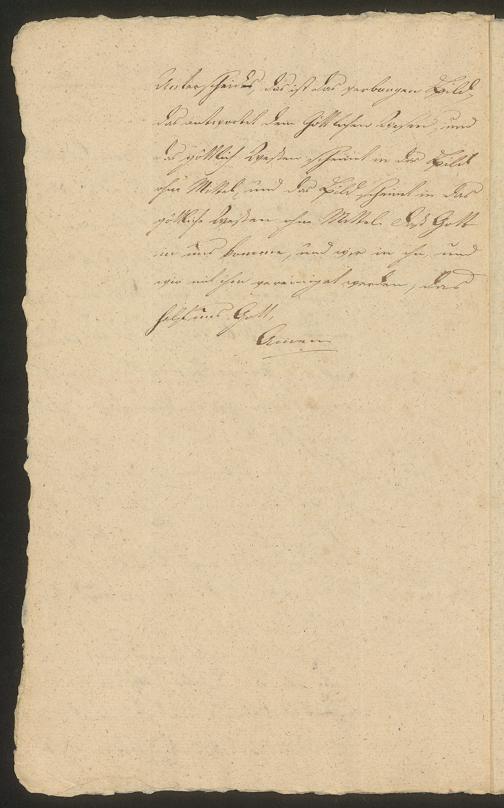 Unterscheids, das ist das verborgen Bild,
das antwortet dem Göttlichen Wesen, und
das göttlich Wesen scheinet in das Bild
ohne Mittel, und das Bild scheinet in das
göttliche Wesen ohne Mittel. Das Gott
in uns komme, und wir in ihn, und
wir mit ihm vereiniget werden, das
helf uns Gott,
Amen